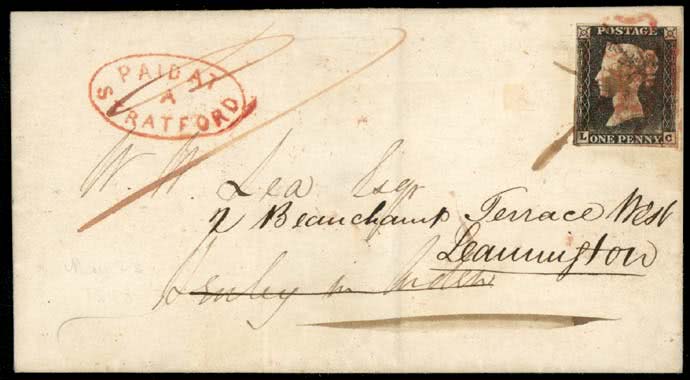 PAID AT
A
STRATFORD
POSTAGE
L ONE PENNY C
W. W. Lea Esqr
7 Beauchamp Terrace West
Leamington
Henley in Arden